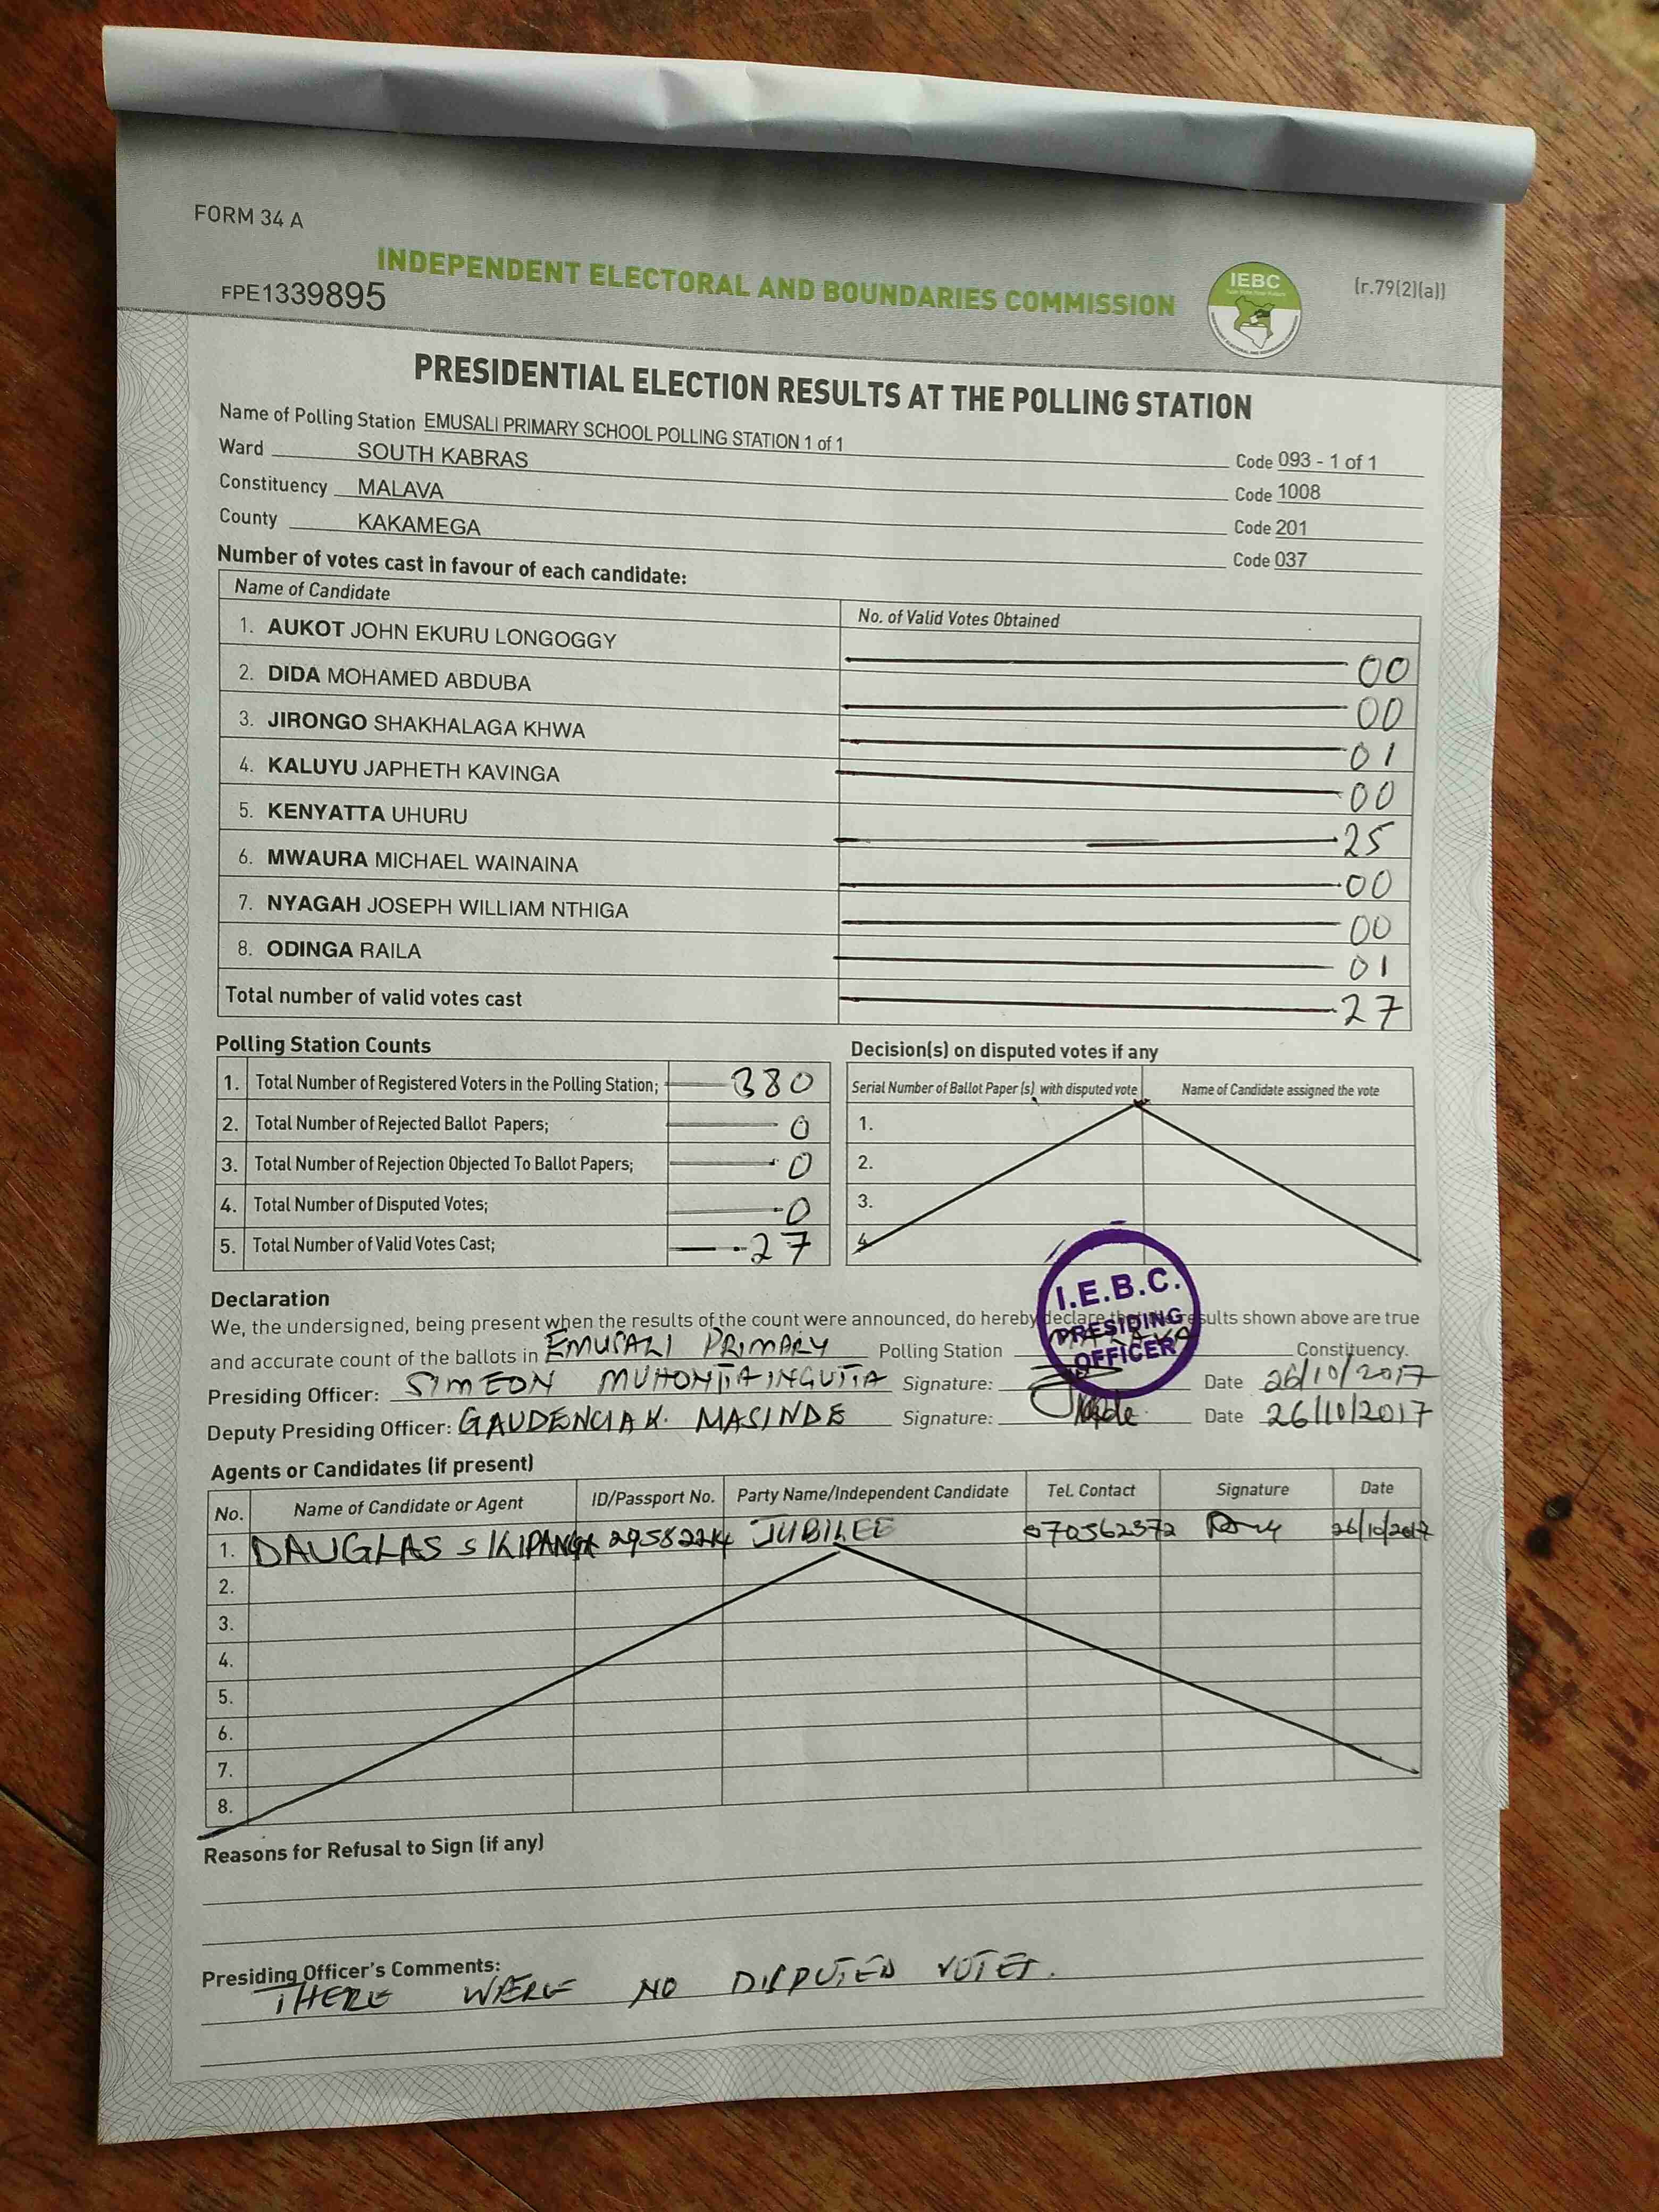 FORM 34 A
INDEPENDENT ELECTORAL AND BOUNDARIES COMMISSION
IEBC
(r.79(2)(a))
FPE1339895
PRESIDENTIAL ELECTION RESULTS AT THE POLLING STATION
Name of Polling Station EMUSALI PRIMARY SCHOOL POLLING STATION 1 of 1 Code 093 - 1 of 1
Ward SOUTH KABRAS Code 1008
Constituency MALAVA Code 201
County KAKAMEGA Code 037
Number of votes cast in favour of each candidate:
Name of Candidate No. of Valid Votes Obtained
1. AUKOT JOHN EKURU LONGOGGY 00
2. DIDA MOHAMED ABDUBA 00
3. JIRONGO SHAKHALAGA KHWA 01
4. KALUYU JAPHETH KAVINGA 00
5. KENYATTA UHURU 25
6. MWAURA MICHAEL WAINAINA 00
7. NYAGAH JOSEPH WILLIAM NTHIGA 00
8. ODINGA RAILA 01
Total number of valid votes cast 27
Polling Station Counts
1. Total Number of Registered Voters in the Polling Station; 380
2. Total Number of Rejected Ballot Papers; 0
3. Total Number of Rejection Objected To Ballot Papers; 0
4. Total Number of Disputed Votes; 0
5. Total Number of Valid Votes Cast; 27
Decision(s) on disputed votes if any
Serial Number of Ballot Paper (s) with disputed vote Name of Candidate assigned the vote
1.
2.
3.
4.
Declaration
We, the undersigned, being present when the results of the count were announced, do hereby declare that the results shown above are true
and accurate count of the ballots in EMUSALI PRIMARY Polling Station Constituency.
I.E.B.C.
PRESIDING
OFFICER
Presiding Officer: SIMEON Signature: Date 26/10/2017
Deputy Presiding Officer: GAUDENCIA K. MASINDE Signature: Date 26/10/2017
Agents or Candidates (if present)
No. Name of Candidate or Agent ID/Passport No. Party Name/Independent Candidate Tel. Contact Signature Date
1. DAUGLAS S JUBILEE 070562372 26/10/2017
2.
3.
4.
5.
6.
7.
8.
Reasons for Refusal to Sign (if any)
Presiding Officer's Comments:
THERE WERE NO DISPUTED VOTES.